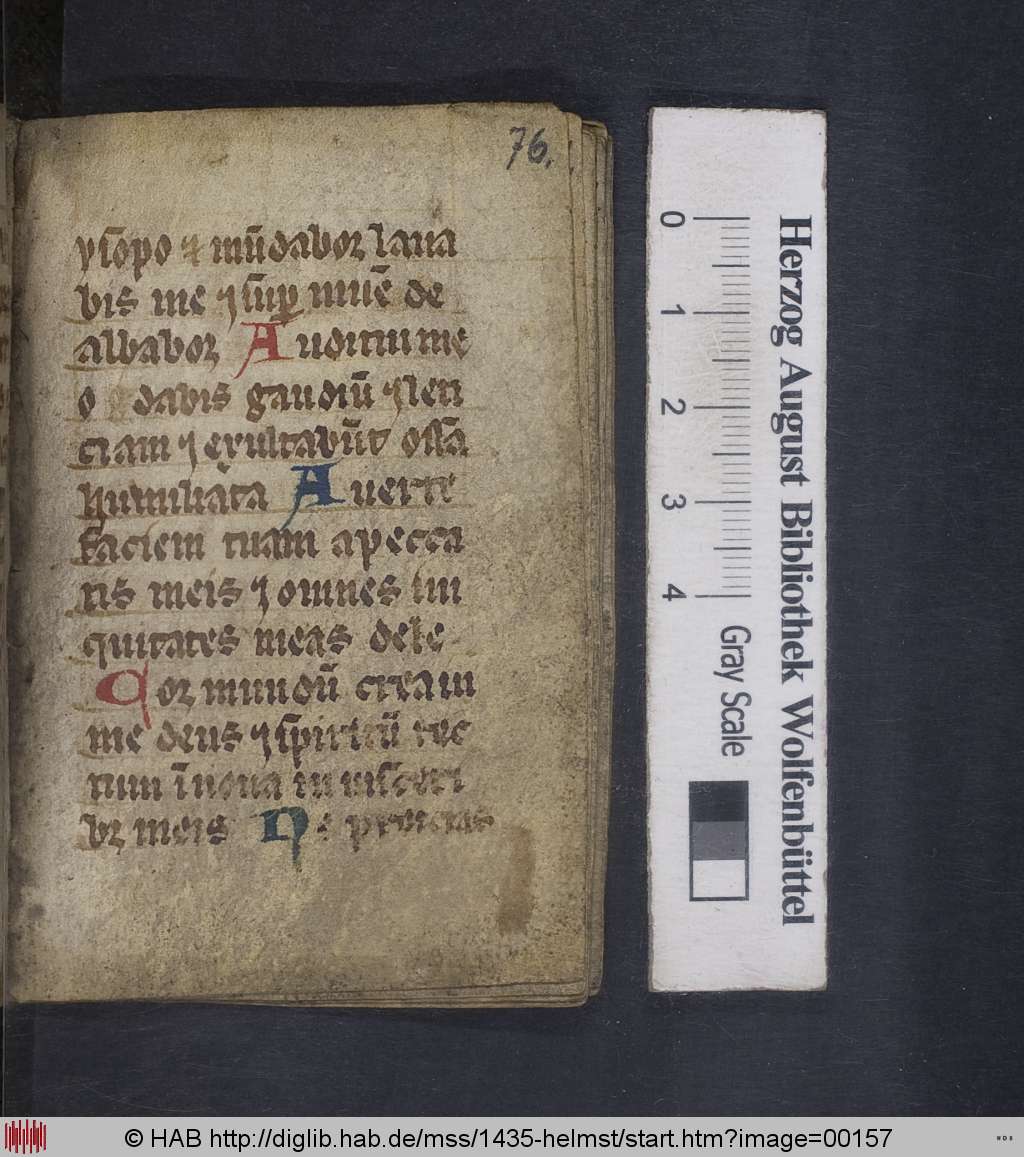 76.
ysopo ⁊ mūdabor laua
bis me ⁊ sup̄ niuē de
albabor Auditui me
o dabis gaudiū ⁊ leti
ciam ⁊ exultabūt ossa
humiliata Auerte
faciem tuam a pecca
tis meis ⁊ omnes ini
quitates meas dele
Cor mundū crea in
me deus ⁊ spiritū rec
tum īnoua in visceri
bꝫ meis Ne proicias
0 1 2 3 4
Gray Scale
Herzog August Bibliothek Wolfenbüttel
© HAB http://diglib.hab.de/mss/1435-helmst/start.htm?image=00157